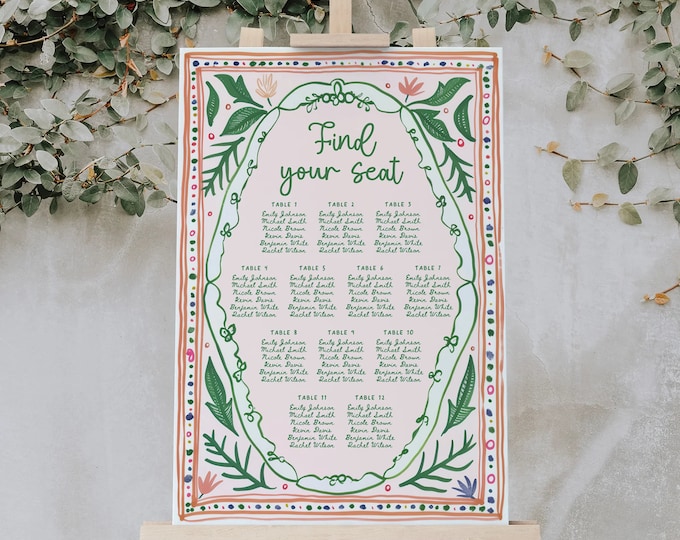 Find
your seat
TABLE 1 TABLE 2 TABLE 3
Emily Johnson Emily Johnson Emily Johnson
Michael Smith Michael Smith Michael Smith
Nicole Brown Nicole Brown Nicole Brown
Kevin Davis Kevin Davis Kevin Davis
Benjamin White Benjamin White Benjamin White
Rachel Wilson Rachel Wilson Rachel Wilson
TABLE 4 TABLE 5 TABLE 6 TABLE 7
Emily Johnson Emily Johnson Emily Johnson Emily Johnson
Michael Smith Michael Smith Michael Smith Michael Smith
Nicole Brown Nicole Brown Nicole Brown Nicole Brown
Kevin Davis Kevin Davis Kevin Davis Kevin Davis
Benjamin White Benjamin White Benjamin White Benjamin White
Rachel Wilson Rachel Wilson Rachel Wilson Rachel Wilson
TABLE 8 TABLE 9 TABLE 10
Emily Johnson Emily Johnson Emily Johnson
Michael Smith Michael Smith Michael Smith
Nicole Brown Nicole Brown Nicole Brown
Kevin Davis Kevin Davis Kevin Davis
Benjamin White Benjamin White Benjamin White
Rachel Wilson Rachel Wilson Rachel Wilson
TABLE 11 TABLE 12
Emily Johnson Emily Johnson
Michael Smith Michael Smith
Nicole Brown Nicole Brown
Kevin Davis Kevin Davis
Benjamin White Benjamin White
Rachel Wilson Rachel Wilson